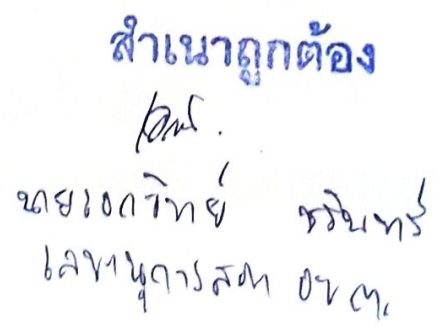 สำเนาถูกต้อง
นายเอกวิทย์
เลขานุการสภา อบต.